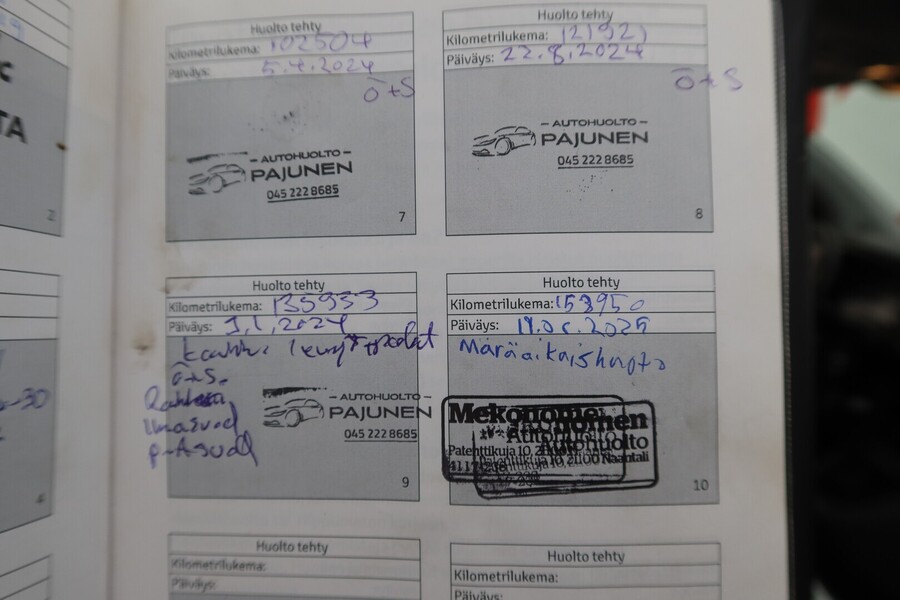 TA
2
-30
4
Huolto tehty
Kilometrilukema: 102504
Päiväys: 5.4.2024
ö+S
AUTOHUOLTO
PAJUNEN
045 222 8685
7
Huolto tehty
Kilometrilukema: 121921
Päiväys: 22.8.2024
ö+S
AUTOHUOLTO
PAJUNEN
045 222 8685
8
Huolto tehty
Kilometrilukema: 135953
Päiväys: 3.1.2024
ö+S.
AUTOHUOLTO
PAJUNEN
045 222 8685
9
Huolto tehty
Kilometrilukema: 153950
Päiväys:
Määräaikaishuolto
Mekonomen
Autohuolto
Patenttikuja 10, 21100 Naantali
10
Huolto tehty
Kilometrilukema:
Päiväys:
Huolto tehty
Kilometrilukema:
Päiväys: